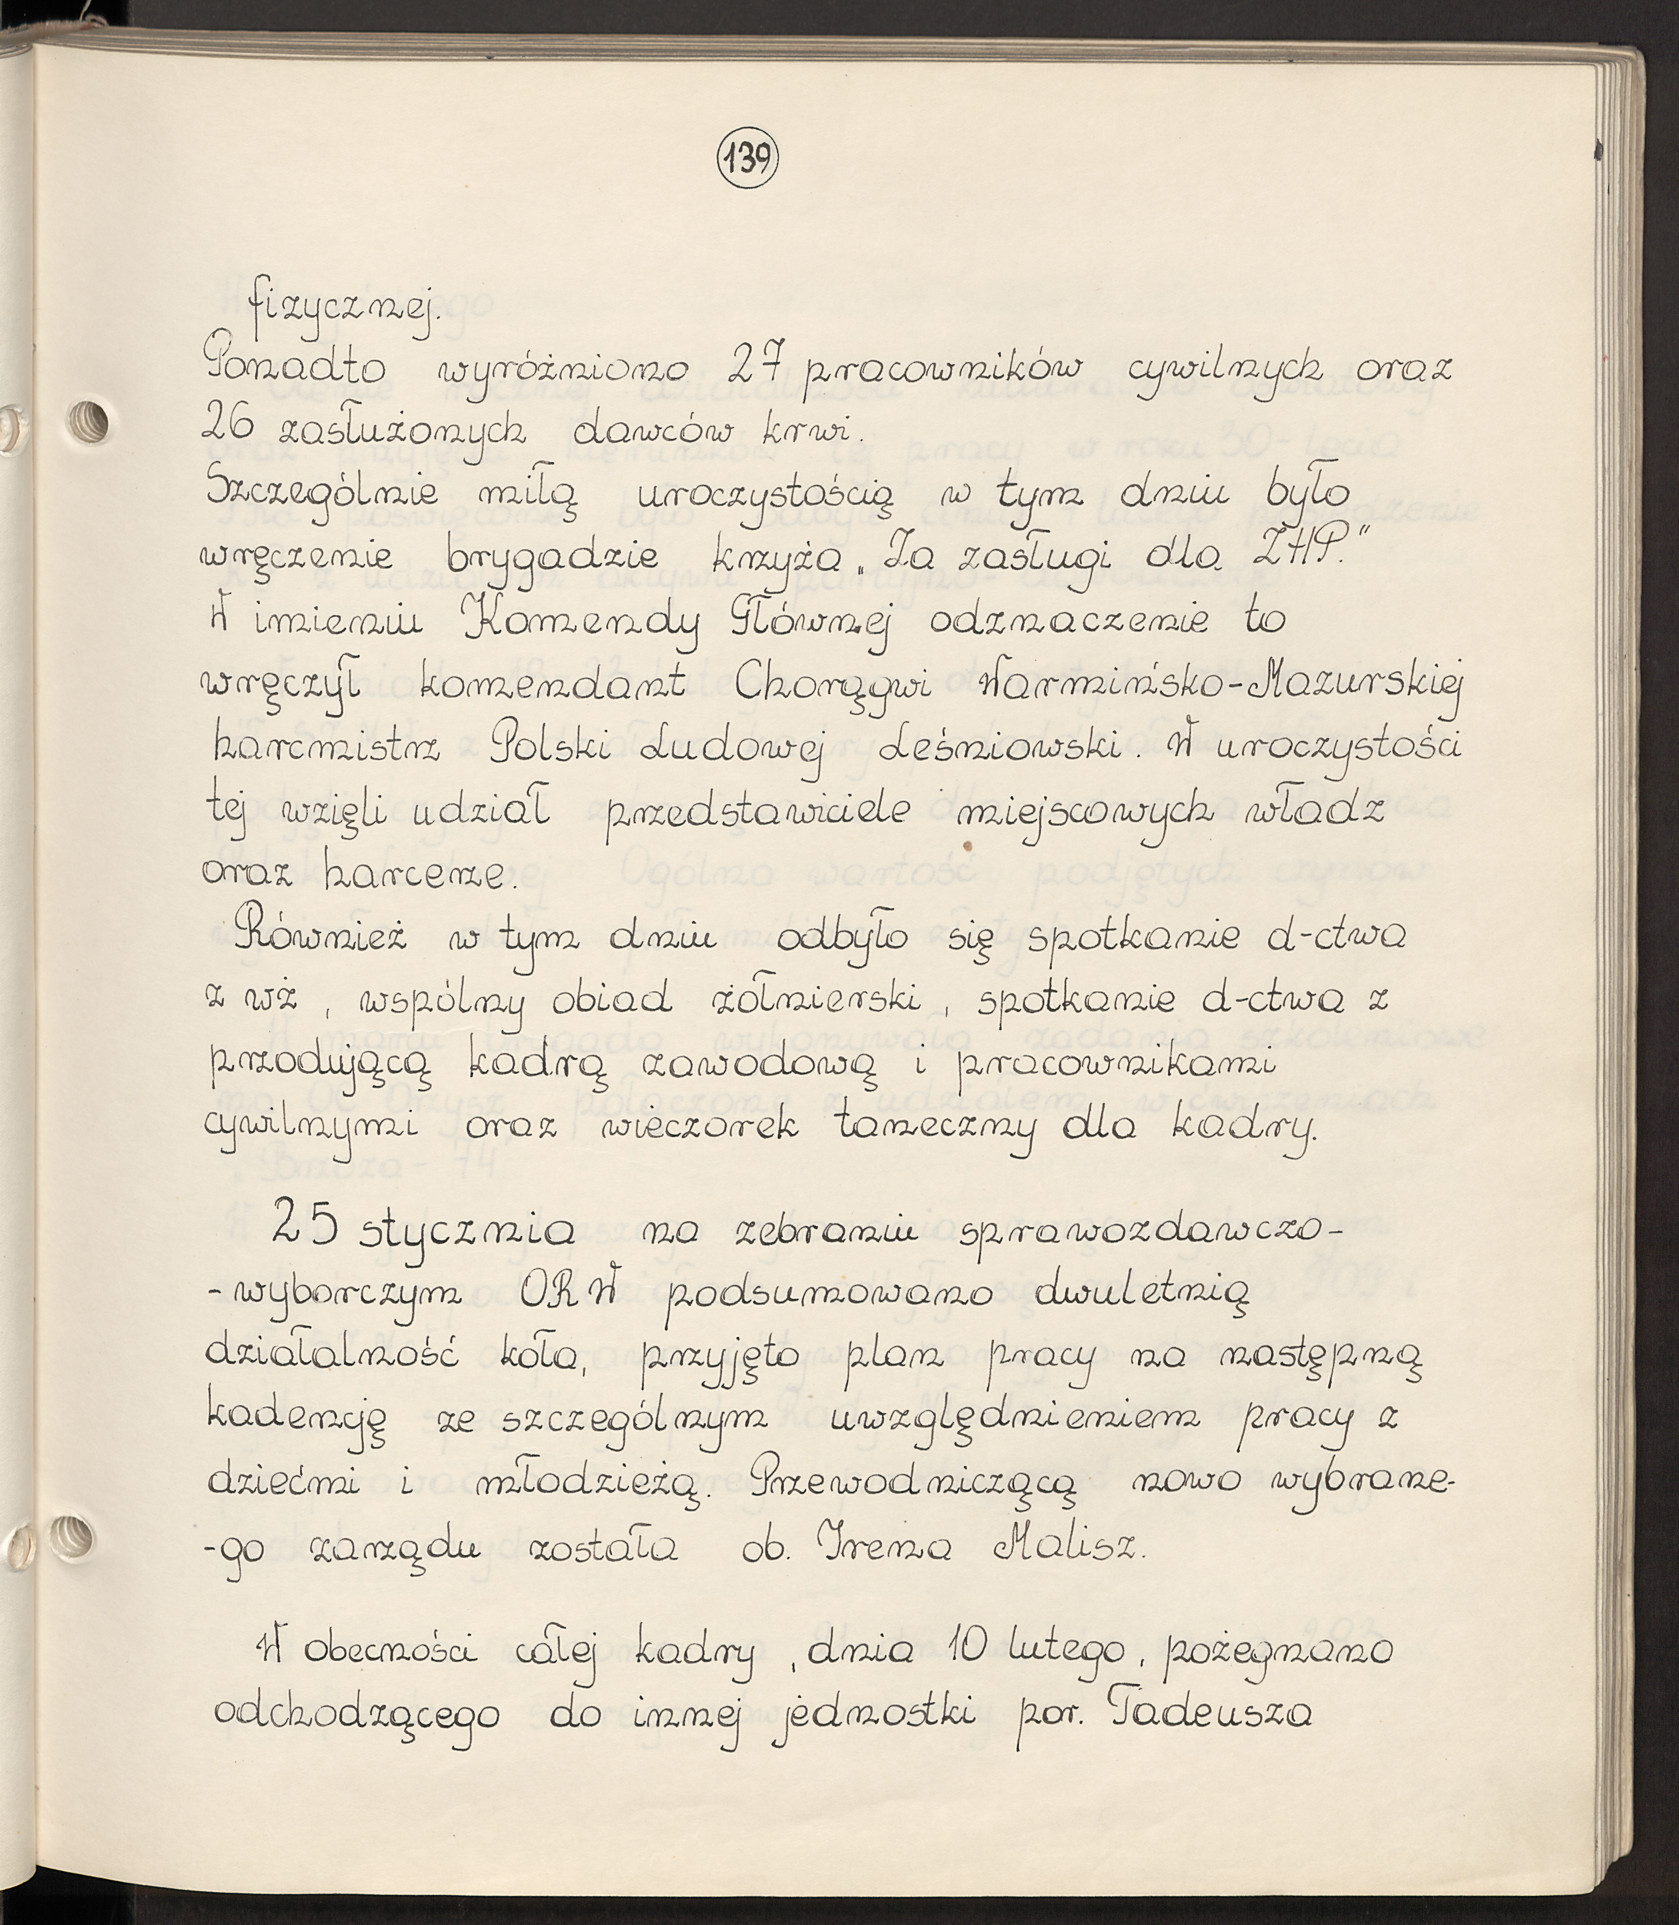 139
fizycznej.
Ponadto wyróżniono 27 pracowników cywilnych oraz
26 zasłużonych dawców krwi.
Szczególnie miłą uroczystością w tym dniu było
wręczenie brygadzie krzyża „Za zasługi dla ZHP."
W imieniu Komendy Głównej odznaczenie to
wręczył komendant Chorągwi Warmińsko-Mazurskiej
harcmistrz Polski Ludowej Leśniowski. W uroczystości
tej wzięli udział przedstawiciele miejscowych władz
oraz harcerze.
Również w tym dniu odbyło się spotkanie d-ctwa
z wż, wspólny obiad żołnierski, spotkanie d-ctwa z
przodującą kadrą zawodową i pracownikami
cywilnymi oraz wieczorek taneczny dla kadry.
25 stycznia na zebraniu sprawozdawczo-
-wyborczym ORW podsumowano dwuletnią
działalność koła, przyjęto plan pracy na następną
kadencję ze szczególnym uwzględnieniem pracy z
dziećmi i młodzieżą. Przewodniczącą nowo wybrane-
-go zarządu została ob. Irena Malisz.
W obecności całej kadry, dnia 10 lutego, pożegnano
odchodzącego do innej jednostki por. Tadeusza